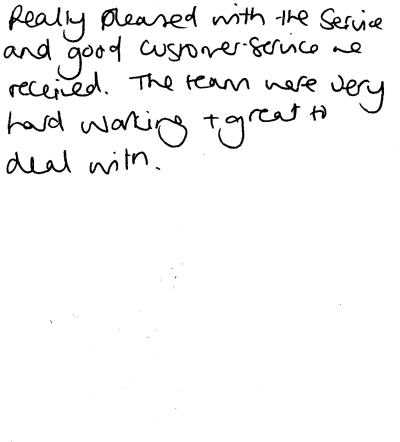 Really pleased with the Service
and good customer service we
received. The team were very
hard working + great to
deal with.